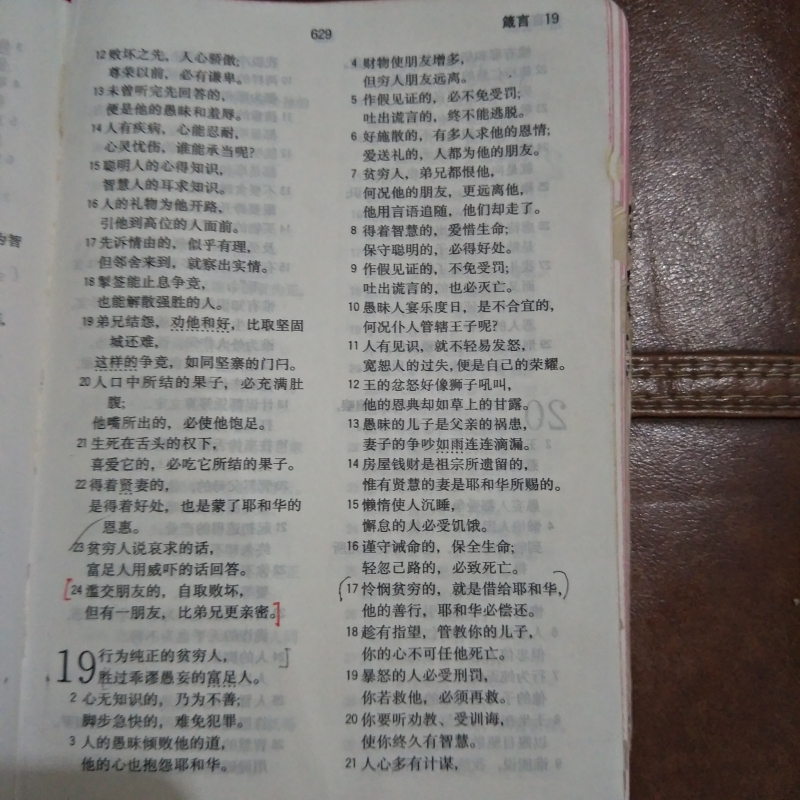 629
箴言 19
12 败坏之先，人心骄傲;
尊荣以前，必有谦卑。
13 未曾听完先回答的，
便是他的愚昧和羞辱。
14 人有疾病，心能忍耐，
心灵忧伤，谁能承当呢?
15 聪明人的心得知识，
智慧人的耳求知识。
16 人的礼物为他开路，
引他到高位的人面前。
17 先诉情由的，似乎有理，
但邻舍来到，就察出实情。
18 掣签能止息争竞，
也能解散强胜的人。
19 弟兄结怨，劝他和好，比取坚固
城还难，
这样的争竞，如同坚寨的门闩。
20 人口中所结的果子，必充满肚
腹;
他嘴所出的，必使他饱足。
21 生死在舌头的权下，
喜爱它的，必吃它所结的果子。
22 得着贤妻的，
是得着好处，也是蒙了耶和华的
恩惠。
23 贫穷人说哀求的话，
富足人用威吓的话回答。
24 滥交朋友的，自取败坏，
但有一朋友，比弟兄更亲密。
19 行为纯正的贫穷人，
胜过乖谬愚妄的富足人。
2 心无知识的，乃为不善;
脚步急快的，难免犯罪。
3 人的愚昧倾败他的道，
他的心也抱怨耶和华。
4 财物使朋友增多，
但穷人朋友远离。
5 作假见证的，必不免受罚;
吐出谎言的，终不能逃脱。
6 好施散的，有多人求他的恩情;
爱送礼的，人都为他的朋友。
7 贫穷人，弟兄都恨他，
何况他的朋友，更远离他，
他用言语追随，他们却走了。
8 得着智慧的，爱惜生命;
保守聪明的，必得好处。
9 作假见证的，不免受罚;
吐出谎言的，也必灭亡。
10 愚昧人宴乐度日，是不合宜的，
何况仆人管辖王子呢?
11 人有见识，就不轻易发怒，
宽恕人的过失，便是自己的荣耀。
12 王的忿怒好像狮子吼叫，
他的恩典却如草上的甘露。
13 愚昧的儿子是父亲的祸患，
妻子的争吵如雨连连滴漏。
14 房屋钱财是祖宗所遗留的，
惟有贤慧的妻是耶和华所赐的。
15 懒惰使人沉睡，
懈怠的人必受饥饿。
16 谨守诫命的，保全生命;
轻忽己路的，必致死亡。
17 怜悯贫穷的，就是借给耶和华，
他的善行，耶和华必偿还。
18 趁有指望，管教你的儿子，
你的心不可任他死亡。
19 暴怒的人必受刑罚，
你若救他，必须再救。
20 你要听劝教、受训诲，
使你终久有智慧。
21 人心多有计谋，